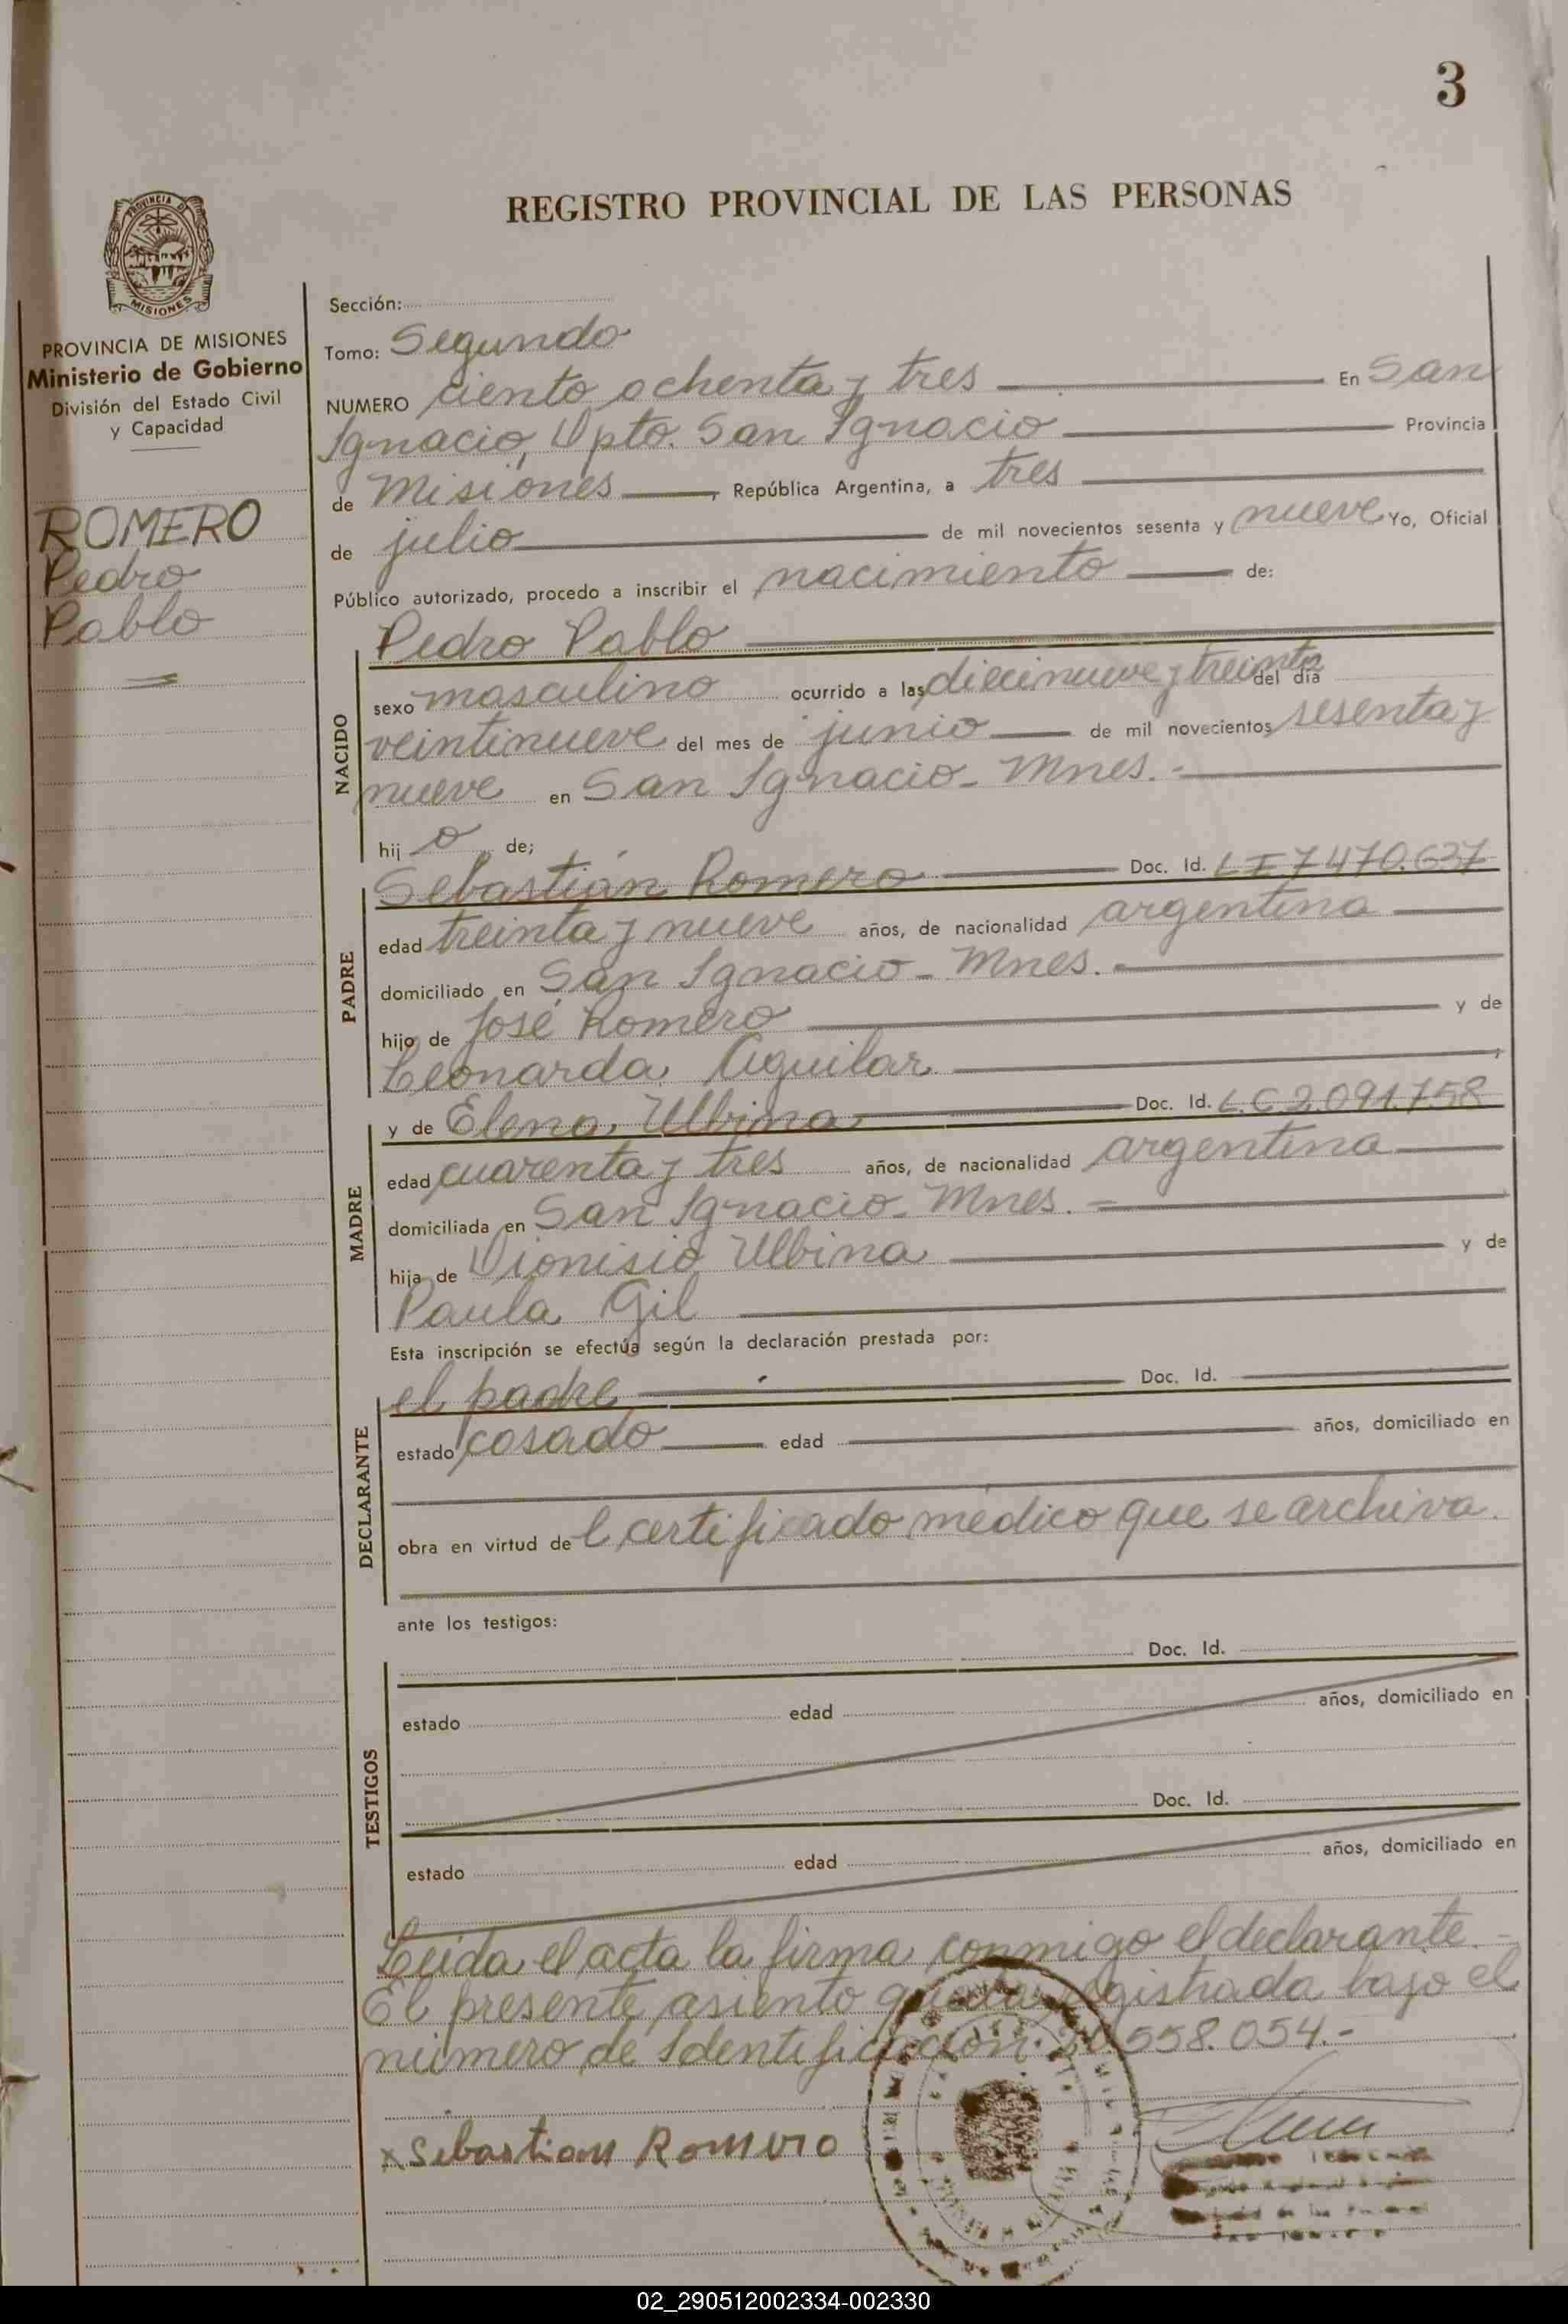 3
REGISTRO PROVINCIAL DE LAS PERSONAS
PROVINCIA DE
MISIONES
PROVINCIA DE MISIONES
Ministerio de Gobierno
División del Estado Civil
y Capacidad
ROMERO
Pedro
Pablo
Sección:
Tomo: Segundo
NUMERO ciento ochenta y tres En San
Ignacio, Dpto. San Ignacio Provincia
de Misiones, República Argentina, a tres
de julio de mil novecientos sesenta y nueve Yo, Oficial
Público autorizado, procedo a inscribir el nacimiento de:
Pedro Pablo
NACIDO
sexo masculino ocurrido a las diecinueve y treinta del día
veintinueve del mes de junio de mil novecientos sesenta y
nueve en San Ignacio - Mnes. -
hij o de;
Sebastián Romero Doc. Id. L I 7470.637
PADRE
edad treinta y nueve años, de nacionalidad argentina
domiciliado en San Ignacio - Mnes. -
hijo de José Romero y de
Leonarda Aguilar ,
y de Elena Ulbina Doc. Id. L.C 2.091.758
MADRE
edad cuarenta y tres años, de nacionalidad argentina
domiciliada en San Ignacio - Mnes. -
hija de Dionisio Ulbina y de
Paula Gil
Esta inscripción se efectúa según la declaración prestada por:
el padre Doc. Id.
DECLARANTE
estado casado edad años, domiciliado en
obra en virtud de l certificado médico que se archiva.
ante los testigos:
Doc. Id.
TESTIGOS
estado edad años, domiciliado en
Doc. Id.
estado edad años, domiciliado en
Leída el acta la firma conmigo el declarante. -
El presente asiento queda registrada bajo el
número de Identificación. 20.558.054.-
x Sebastian Romero
02_290512002334-002330